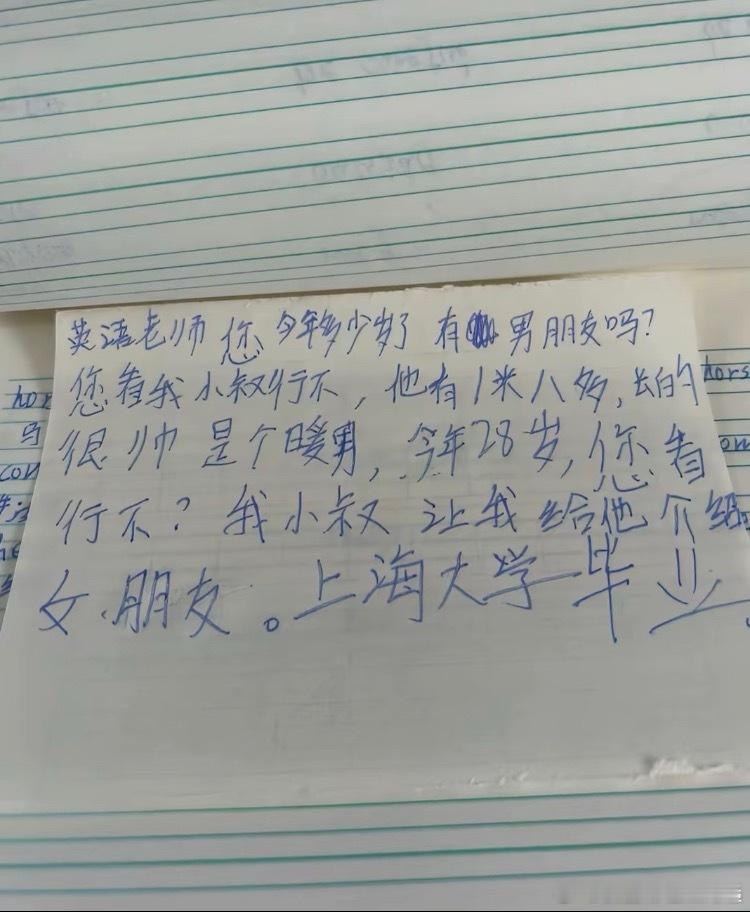 英语老师 您 今年多少岁了 有 男朋友吗?
您看我小叔行不,他有1米八多,长的
很帅 是个暖男,今年28岁,您看
行不?我小叔 让我给他介绍
女朋友。上海大学毕业。
hors
hor
马
con